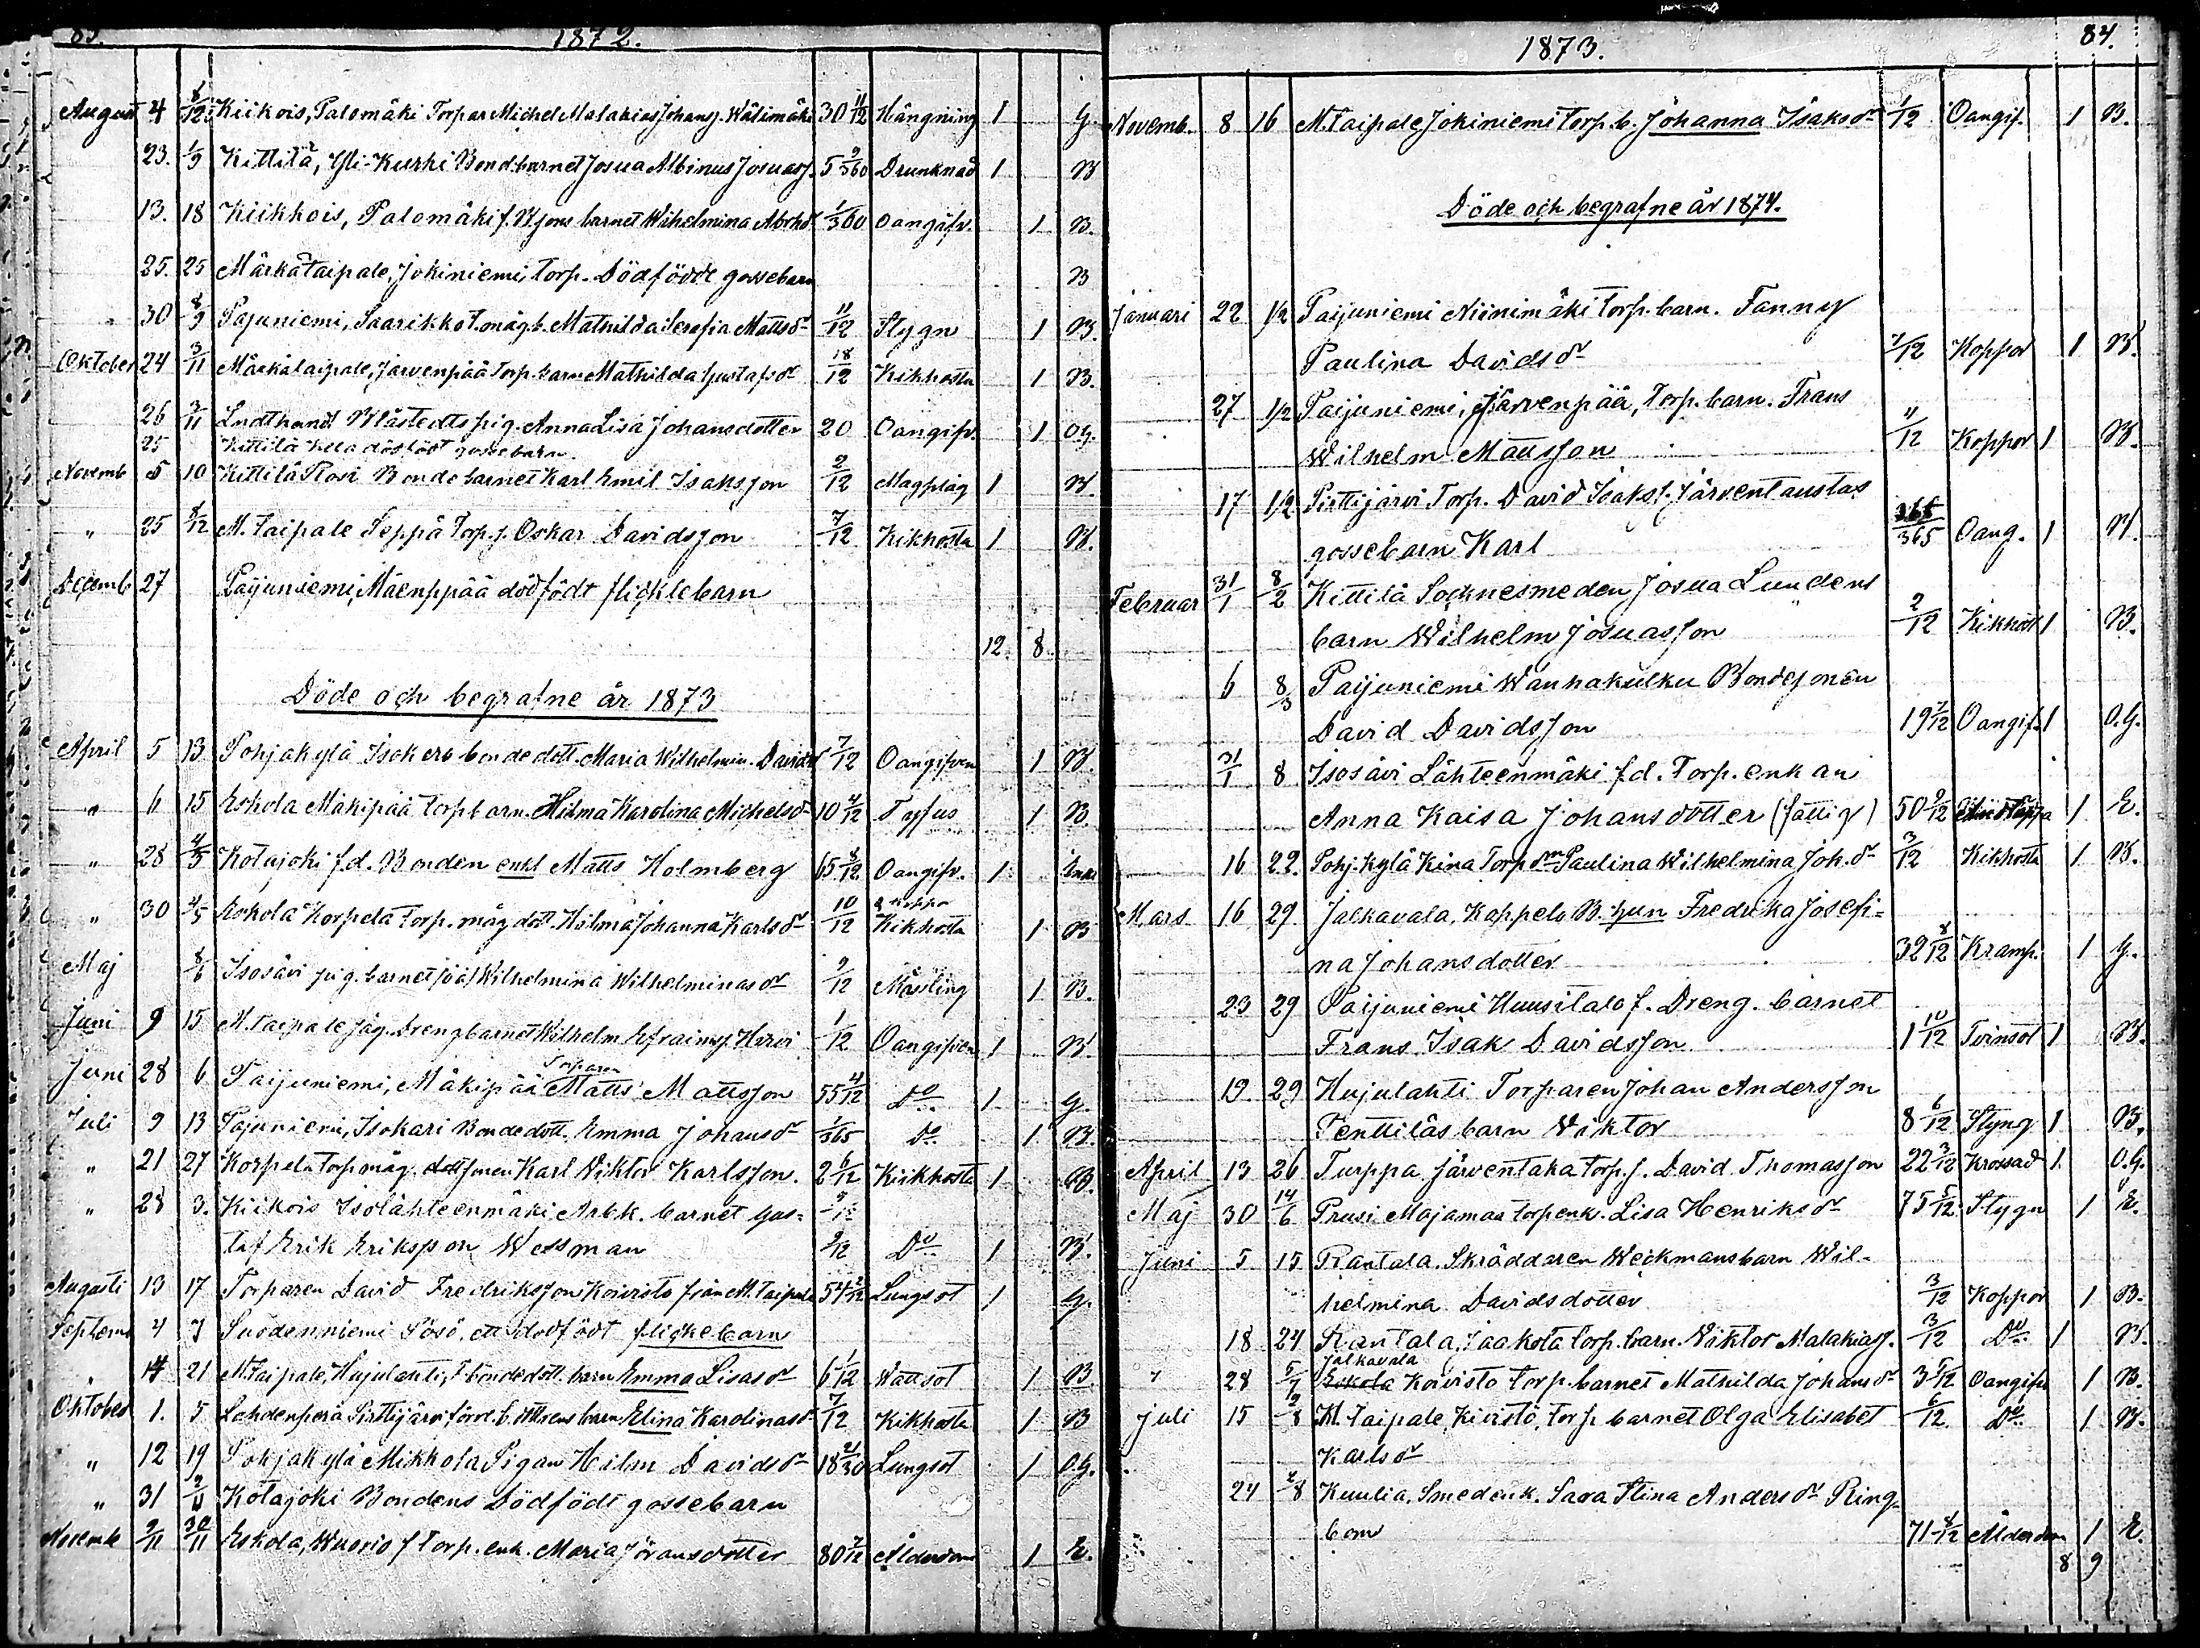 83.
1872.
August 4 8/12 Kiikois, Palomäki Torpar Michel Malakias Johansj. Wälimäki 30 11/12 Hängning 1 G.
23. 1/9 Kittilä, Yli-Kurki Bondbarnet Josua Albinus Josuasj. 5 9/360 Drunknad 1 B
13. 18 Kiikkois, Palomäki f. B. sons barnet Wilhelmina Abrhdr 1/360 Oangifv. 1 B.
25. 25 Märkätaipale, Jokiniemi, Torp. Dödfödde gossebarn B
30 8/9 Pajuniemi, Saarikko T. måg. b. Mathilda Serafia Mattsdr 11/12 Stygn 1 B.
Oktober 24 3/11 Märkätaipale, Järvenpää Torp. barn Mathilda Gustafsdr 18/12 Kikhosta 1 B.
26 3/11 Lndthandl Blåstedts pig. Anna Lisa Johansdotter 20 Oangifv. 1 OG.
25 Kittilä dödfödt gossebarn.
Novemb 5 10 Kittilä Rosi Bondebarnet Karl Emil Isaksson 2/12 Magplåg 1 B.
" 25 8/12 M. Taipale Seppä Torp. s. Oskar Davidsson 7/12 Kikhosta 1 B.
Decemb 27 Paijuniemi, Mäenppää dödfödt flicklebarn
12. 8.
Döde och begrafne år 1873
April 5 13 Pohjakylä Isokero bondedott. Maria Wilhelmin. Davidsdr 7/12 Oangifven 1 B.
" 6 15 Eskola Mäkipää Torpbarn. Hilma Karolina Michelsdr 10 4/12 Tyfus 1 B.
" 28 4/5 Kotajoki f.d. Bonden enkl Matts Holmberg 65 8/12 Oangifv. 1 Enkl
" 30 4/5 Eskola Korpela Torp. måg dott. Hilma Johanna Karlsdr 10/12 Kikhosta 1 B
Maj 8/6 Isosävi pig. barnet Wilhelmina Wilhelminasdr 9/12 Mässling 1 B.
Juni 9 15 M. Taipale Jäg. Drengbarnet Wilhelm Efraimsj. Hirvi 1/12 Oangifven 1 B.
Torparen
Juni 28 6 Paijuniemi, Mäkipää Matts Mattsson 55 4/12 Do 1 G.
Juli 9 13 Pajuniemi, Isokari Bondedott. Emma Johansdr 1/365 Do 1 B
" 21 27 Korpela Torp. måg. sonen Karl Viktor Karlsson. 2 6/12 Kiikhosta 1 B.
" 28 3. Kiikois Isolähteenmäki Arbk. barnet Gus-
taf Erik Eriksson Wessman 9/12 Do 1 B.
Augusti 13 17 Torparen David Fredriksson Koivisto från M. Taipale 54 2/12 Lungsot 1 G.
Septemb 4 7 Suodenniemi Sösö, ett dödfödt flickebarn
" 14 21 M. Taipale, Hujulahti, f. bondedott. barn Emma Lisasdr 6 1/12 Wattsot 1 B.
Oktober 1. 5 Lahdenperä Pirttijärvi barn Elina Karolinasdr 7/12 Kikhosta 1 B
" 12 19 Pohjakylä Mikkola Pigan Hilm Davidsdr 18 21/30 Lungsot 1 O.G.
" 31 9/11 Kotajoki Bondens Dödfödt gossebarn
Novemb 9/11 30/11 Eskola, Wuorio f Torp. enk. Maria Göransdotter 80 7/12 Ålderdom 1 E.
1873.
84.
Novemb. 8 16 M. Taipale Jokiniemi Torp. b. Johanna Isaksdr 1/12 Oangif. 1 B.
Döde och begrafne år 1874.
Januari 22 1/2 Paijuniemi Niinimäki Torp. barn. Fanny
Paulina Davidsdr 7/12 Koppor 1 B.
27 1/2 Paijuniemi, Järvenpää, Torp. barn. Frans
Wilhelm Mattsson 11/12 Koppor 1 B.
17 1/2 Pirttijärvi Torp. David Isaks. Järventaustas
gossebarn Karl 365 Oang. 1 B.
Februar 31/1 8/2 Kittilä Socknesmeden Josua Lundens
barn Wilhelm Josuasson 2/12 Kikhost 1 B.
6 8/3 Paijuniemi Wanhakulku Bondesonen
David Davidsson 19 7/12 Oangif. 1 O.G.
31/1 8 Isosävi Lähteenmäki f.d. Torp. enkan
Anna Kaisa Johansdotter (fattig) 50 9/12 1 E.
16 22. Pohj. kylä Kina Torp Paulina Wilhelmina Joh. dr 3/12 Kikhosta 1 B.
Mars 16 29 Jalkavala, Kappelo B. hun Fredrika Josefi-
na Johansdotter 32 8/12 Kramp. 1 G.
23 29 Paijuniemi Huusitalo f. Dreng. barnet
Frans Isak Davidsson 1 10/12 Tvinsot 1 B.
19. 29 Hujulahti Torparen Johan Andersson
Penttiläs barn Viktor 8 6/12 Styng 1 B.
April 13 26 Turppa Järventaka Torp. s. David Thomasson 22 3/12 Krossad 1. O.G.
Maj 30 14/6 Prusi Majamaa Torpenk. Lisa Henriksdr 75 5/12 Stygn 1 E.
Juni 5 15 Rantala. Skräddaren Weckmans barn Wil-
helmina Davidsdotter 3/12 Koppor 1 B.
18 24 Rantala, Jaakola Torp. barn. Viktor Malakiasj. 3/12 Do 1 B.
Jalkavala
" 28 5/7 Eskola Koivisto Torp. barnet Mathilda Johansdr 3 5/12 Oangifv 1 B.
Juli 15 2/8 M. Taipale, Kivistö, Torp barnet Olga Elisabet 6/12. Do 1 B.
Karlsdr
24 2/8 Kuulia, Smedenk. Sara Stina Andersdr Ring-
bom 71 8/12 Ålderdom 1 E.
8 9